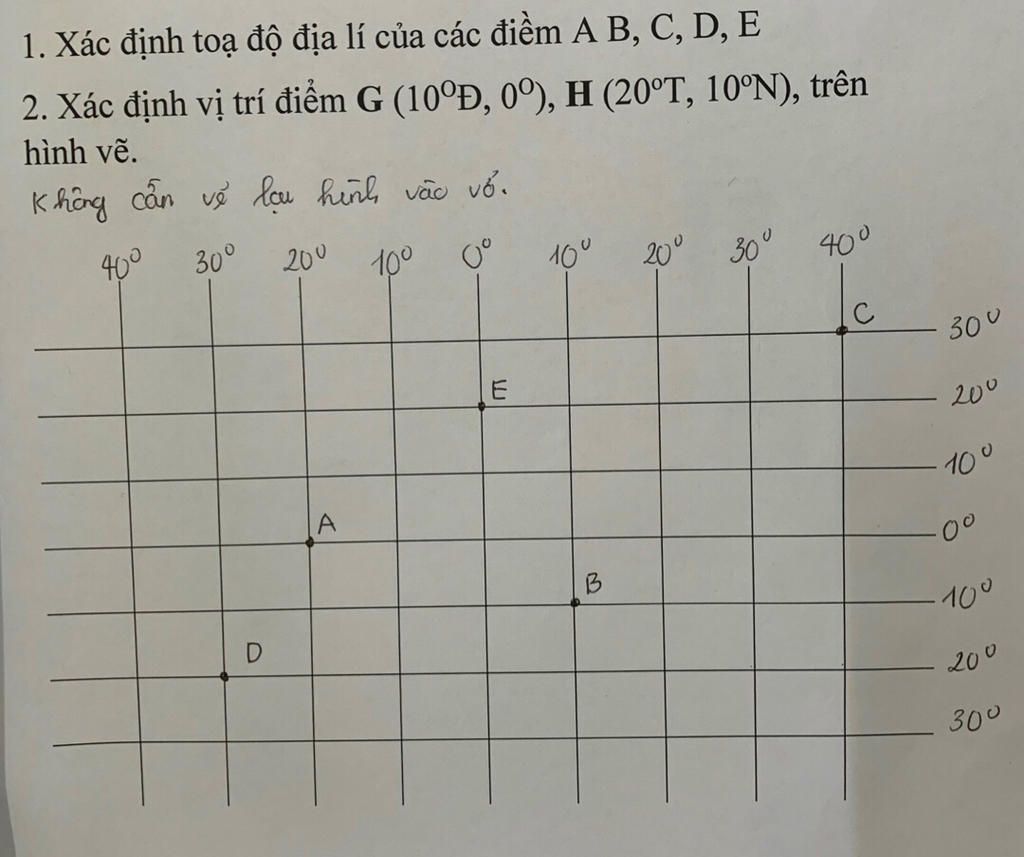 1. Xác định toạ độ địa lí của các điềm A B, C, D, E
2. Xác định vị trí điểm G (10⁰Đ, 0⁰), H (20ºT, 10ºN), trên
hình vẽ.
Không cần vẽ lại hình vào vở.
40⁰ 30⁰ 20⁰ 10⁰ 0⁰ 10⁰ 20⁰ 30⁰ 40⁰
C
30⁰
E
20⁰
10⁰
A
0⁰
B
10⁰
D
20⁰
30⁰